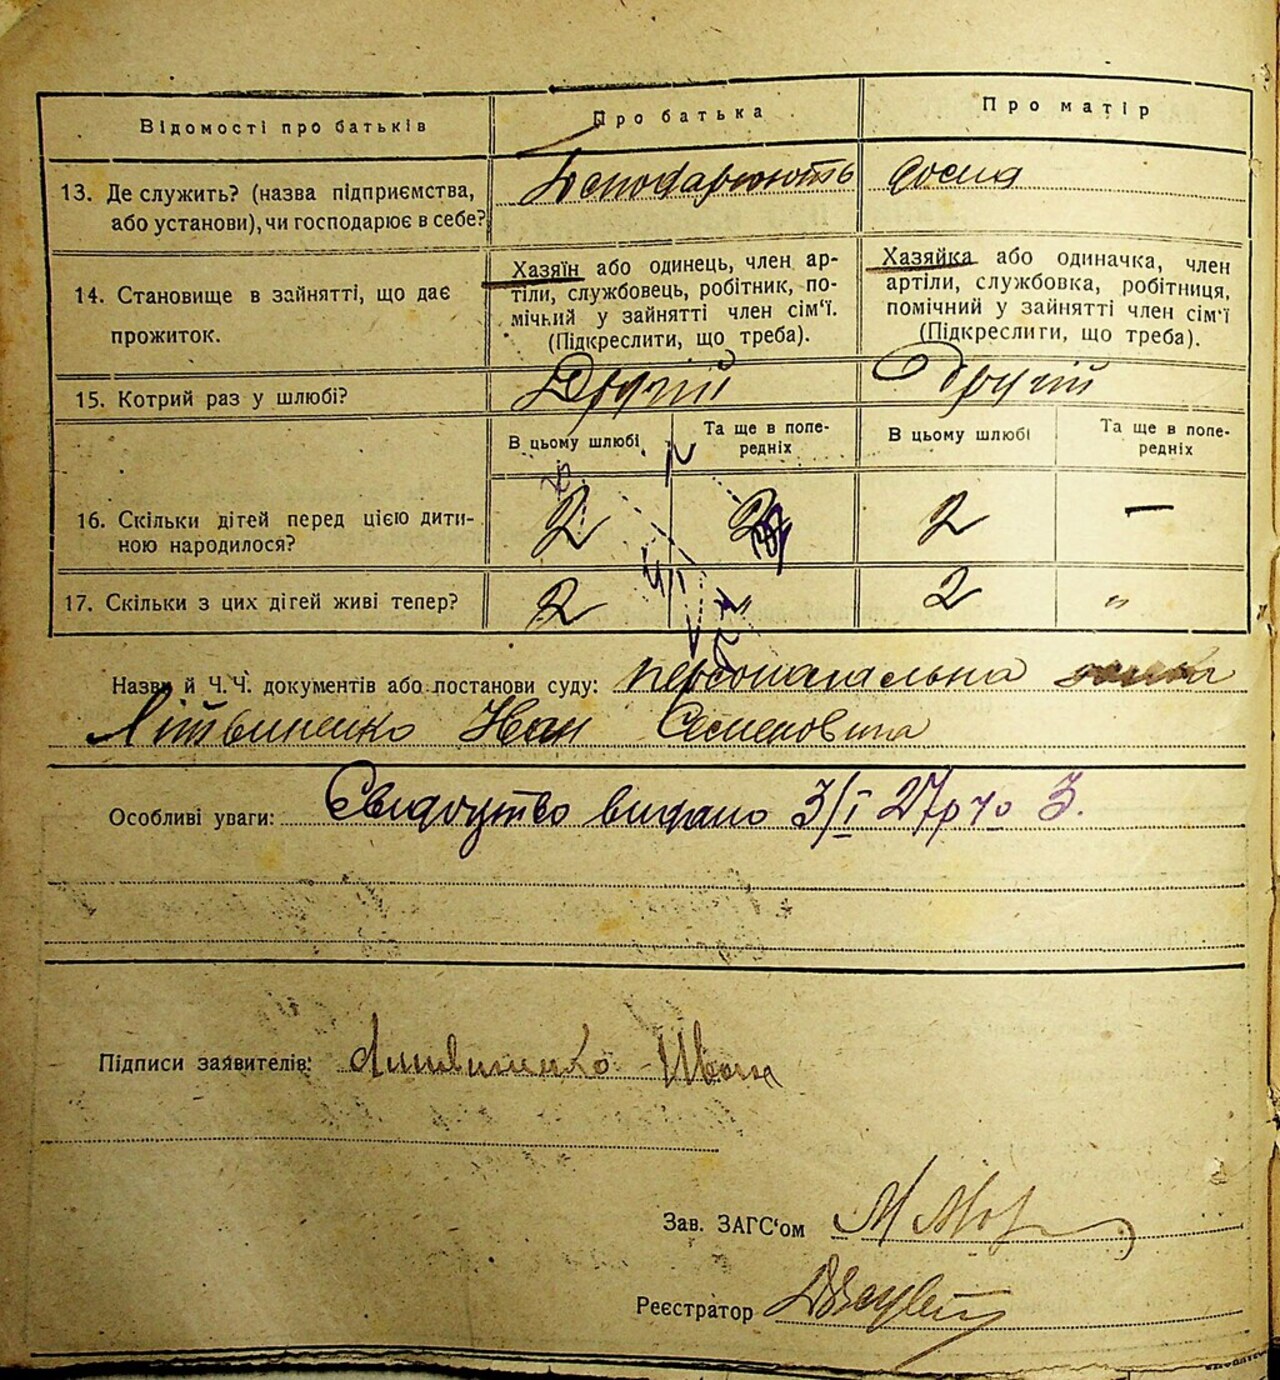 Відомості про батьків
Про батька
Про матір
13. Де служить? (назва підприємства, або установи), чи господарює в себе?
Господарюють
14. Становище в зайнятті, що дає прожиток.
Хазяїн або одинець, член ар-
тіли, службовець, робітник, по-
мічний у зайнятті член сім'ї.
(Підкреслити, що треба).
Хазяйка або одиначка, член
артіли, службовка, робітниця,
помічний у зайнятті член сім'ї
(Підкреслити, що треба).
15. Котрий раз у шлюбі?
Другий
Другий
В цьому шлюбі
Та ще в попе-
редніх
В цьому шлюбі
Та ще в попе-
редніх
16. Скільки дітей перед цією дити-
ною народилося?
2
2
—
17. Скільки з цих дітей живі тепер?
2
2
"
Назви й Ч.Ч. документів або постанови суду:
Літвиненко Іван Семеновича
Особливі уваги: Свидоцтво видано 3/I 27р чо 3.
Підписи заявителів: Литвиненко Иван
Зав. ЗАГС'ом
Реєстратор